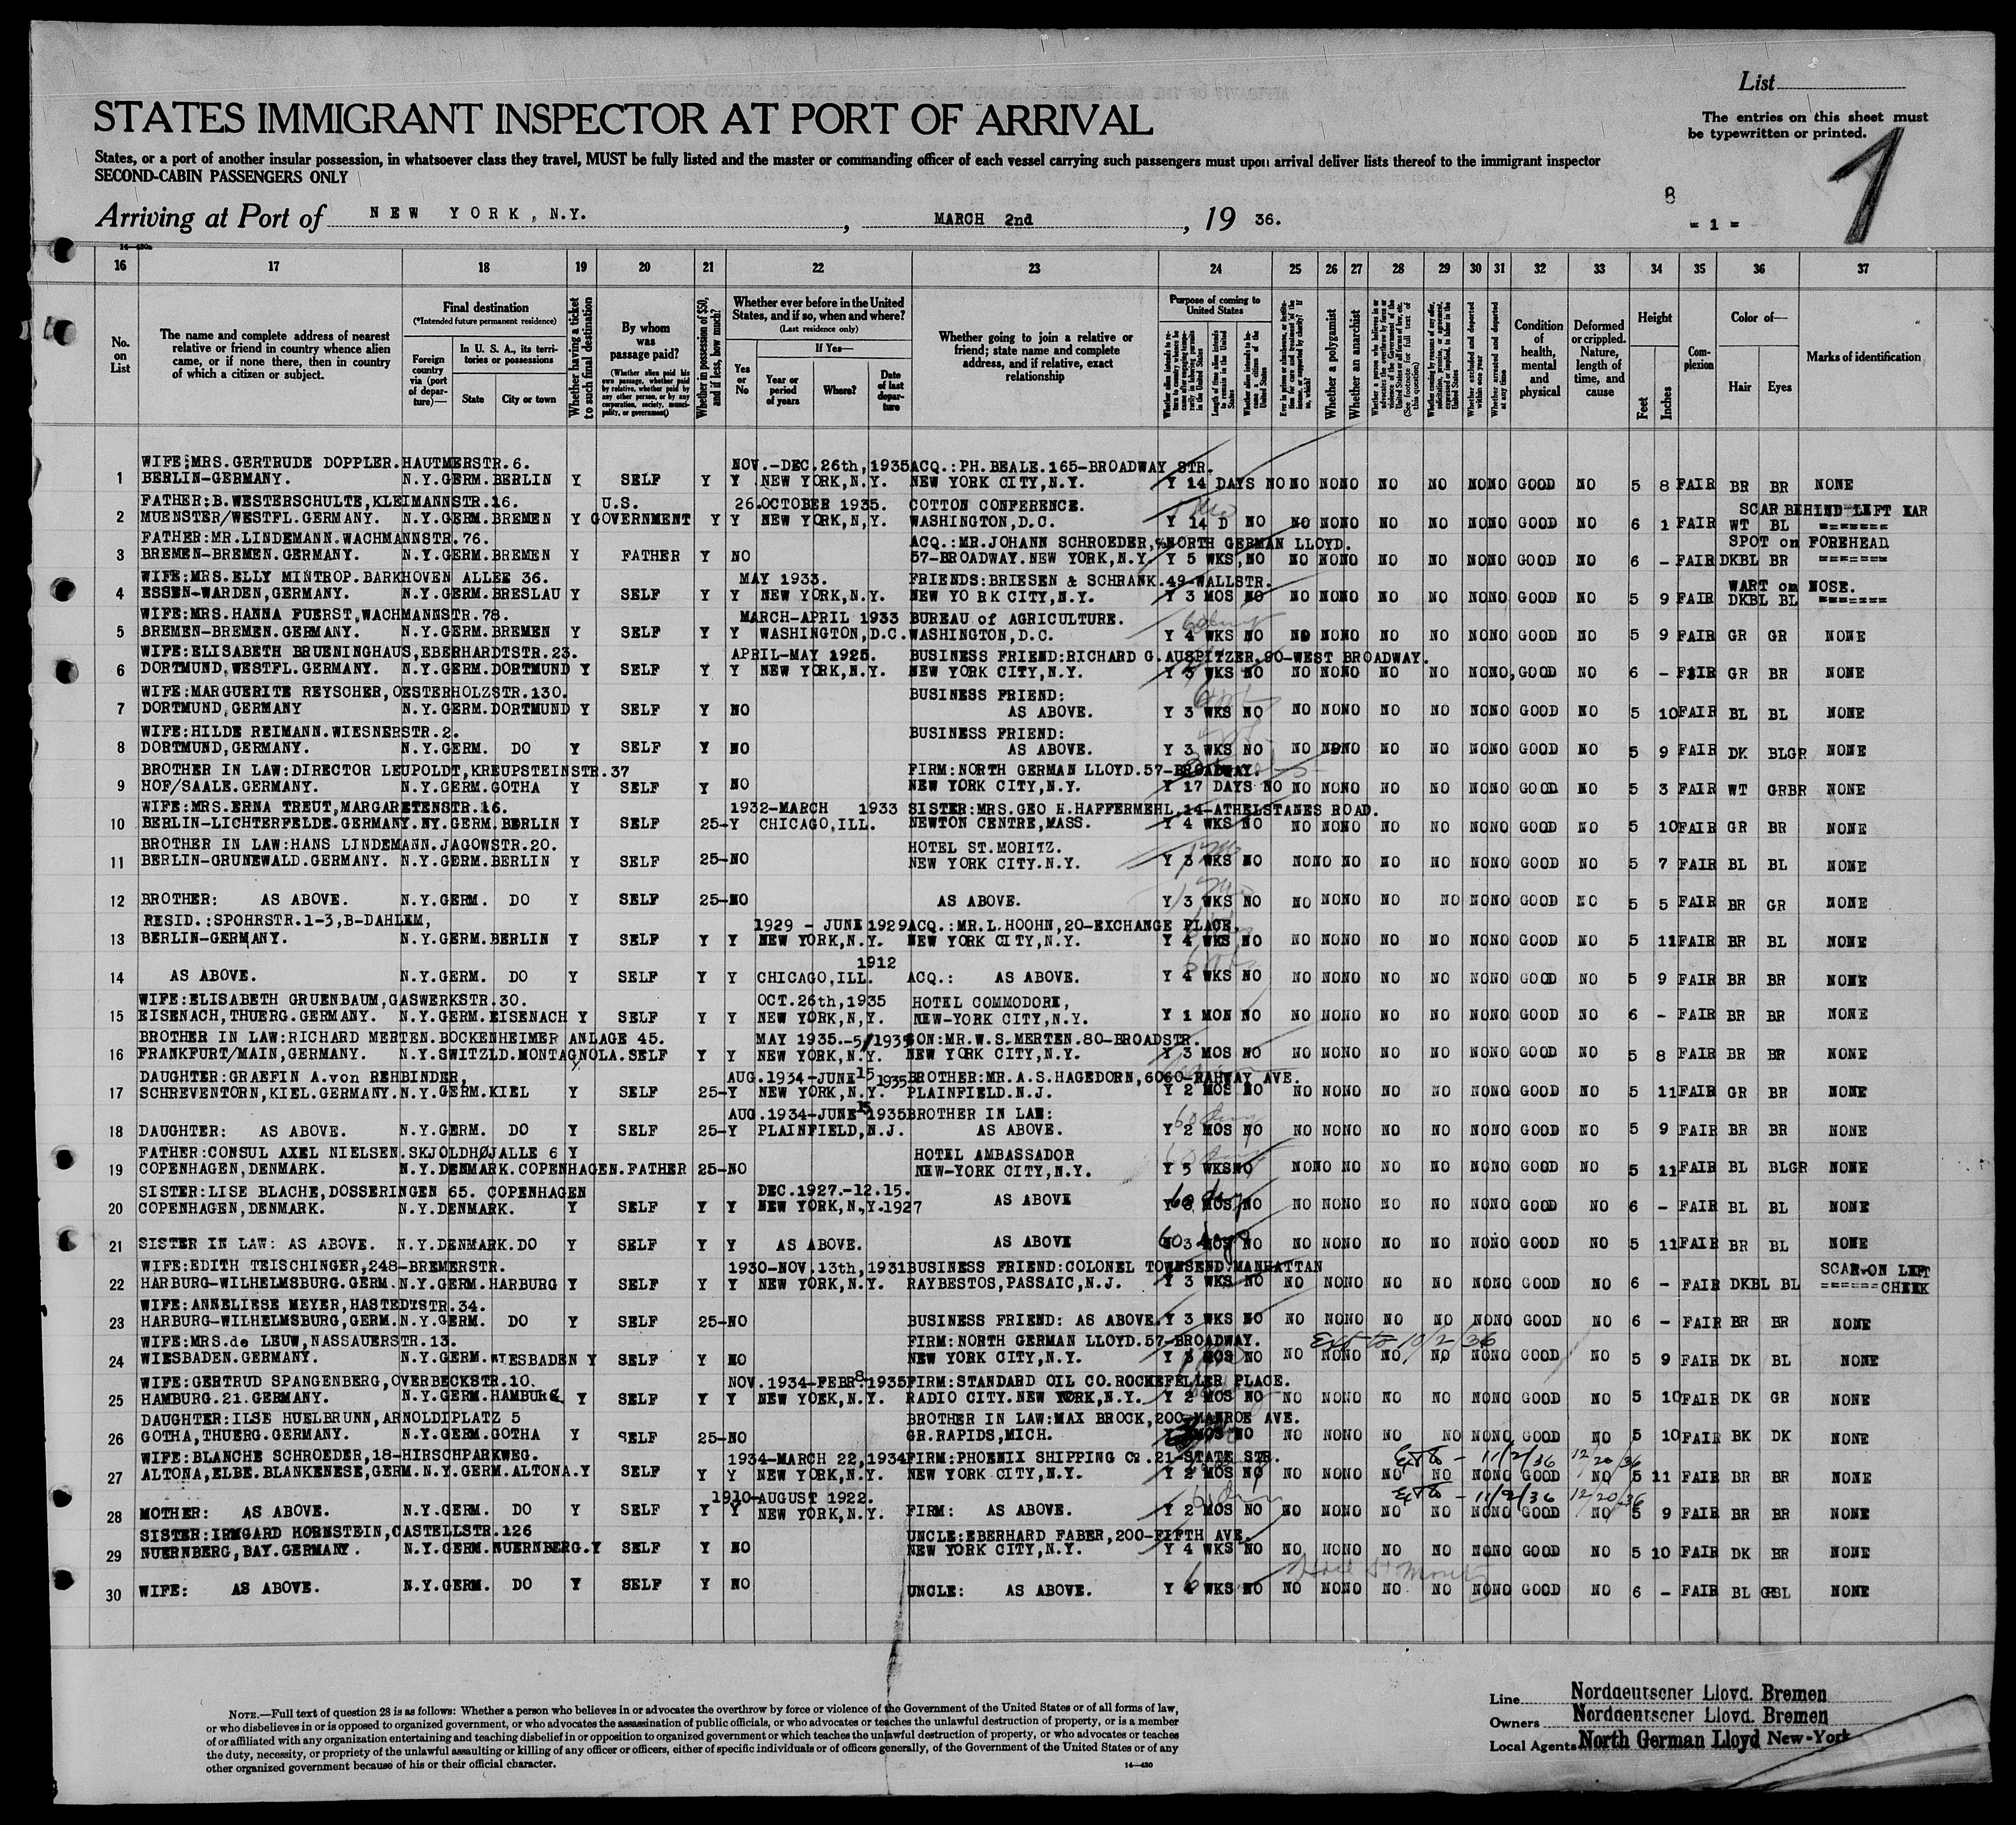 List
The entries on this sheet must
be typewritten or printed.
STATES IMMIGRANT INSPECTOR AT PORT OF ARRIVAL
1
States, or a port of another insular possession, in whatsoever class they travel, MUST be fully listed and the master or commanding officer of each vessel carrying such passengers must upon arrival deliver lists thereof to the immigrant inspector
SECOND-CABIN PASSENGERS ONLY
8
Arriving at Port of NEW YORK, N.Y. , MARCH 2nd , 19 36. = 1 =
16 17 18 19 20 21 22 23 24 25 26 27 28 29 30 31 32 33 34 35 36 37
No. on List
The name and complete address of nearest relative or friend in country whence alien came, or if none there, then in country of which a citizen or subject.
Final destination
(*Intended future permanent residence)
Foreign country via (port of departure)—
In U. S. A., its territories or possessions
State City or town
Whether having a ticket to such final destination
By whom was passage paid?
(Whether alien paid his own passage, whether paid by relative, whether paid by any other person, or by any corporation, society, municipality, or government)
Whether in possession of $50, and if less, how much?
Whether ever before in the United States, and if so, when and where?
(Last residence only)
Yes or No
If Yes—
Year or period of years Where? Date of last departure
Whether going to join a relative or friend; state name and complete address, and if relative, exact relationship
Purpose of coming to United States
Length of time alien intends to remain in the United States
Whether alien intends to become a citizen of the United States
Whether a polygamist
Whether an anarchist
Whether excluded and deported within one year
Whether arrested and deported at any time
Condition of health, mental and physical
Deformed or crippled. Nature, length of time, and cause
Height
Feet Inches
Complexion
Color of—
Hair Eyes
Marks of identification
WIFE:MRS.GERTRUDE DOPPLER.HAUTMERSTR.6. NOV.-DEC.26th,1935 ACQ.:PH.BEALE.165-BROADWAY STR.
1 BERLIN-GERMANY. N.Y.GERM.BERLIN Y SELF Y Y NEW YORK,N.Y. NEW YORK CITY,N.Y. Y 14 DAYS NO NO NO NO NO NO NO NO GOOD NO 5 8 FAIR BR BR NONE
FATHER:B.WESTERSCHULTE,KLEIMANNSTR.16. U.S. 26.OCTOBER 1935. COTTON CONFERENCE. SCAR BEHIND LEFT EAR
2 MUENSTER/WESTFL.GERMANY. N.Y.GERM.BREMEN Y GOVERNMENT Y Y NEW YORK,N,Y. WASHINGTON,D.C. Y 14 D NO NO NO NO NO NO NO NO GOOD NO 6 1 FAIR WT BL =======
FATHER:MR.LINDEMANN.WACHMANNSTR.76. ACQ.:MR.JOHANN SCHROEDER,%NORTH GERMAN LLOYD. SPOT on FOREHEAD
3 BREMEN-BREMEN.GERMANY. N.Y.GERM.BREMEN Y FATHER Y NO 57-BROADWAY.NEW YORK,N.Y. Y 5 WKS,NO NO NO NO NO NO NO NO GOOD NO 6 - FAIR DKBL BR =======
WIFE:MRS.ELLY MINTROP.BARKHOVEN ALLEE 36. MAY 1933. FRIENDS:BRIESEN & SCHRANK.49-WALLSTR. WART on NOSE.
4 ESSEN-WARDEN,GERMANY. N.Y.GERM.BRESLAU Y SELF Y Y NEW YORK,N.Y. NEW YO RK CITY,N.Y. Y 3 MOS NO NO NO NO NO NO NO NO GOOD NO 5 9 FAIR DKBL BL =======
WIFE:MRS.HANNA FUERST,WACHMANNSTR.78. MARCH-APRIL 1933 BUREAU of AGRICULTURE.
5 BREMEN-BREMEN.GERMANY. N.Y.GERM.BREMEN Y SELF Y Y WASHINGTON,D.C. WASHINGTON,D.C. Y 4 WKS NO NO NO NO NO NO NO NO GOOD NO 5 9 FAIR GR GR NONE
WIFE:ELISABETH BRUENINGHAUS,EBERHARDTSTR.23. APRIL-MAY 1925. BUSINESS FRIEND:RICHARD G.AUSPITZER,90-WEST BROADWAY.
6 DORTMUND,WESTFL.GERMANY. N.Y.GERM.DORTMUND Y SELF Y Y NEW YORK,N.Y. NEW YORK CITY,N.Y. Y 3 WKS NO NO NO NO NO NO NO NO,GOOD NO 6 - FAIR GR BR NONE
WIFE:MARGUERITE REYSCHER,OESTERHOLZSTR.130. BUSINESS FRIEND:
7 DORTMUND,GERMANY N.Y.GERM.DORTMUND Y SELF Y NO AS ABOVE. Y 3 WKS NO NO NO NO NO NO NO NO GOOD NO 5 10 FAIR BL BL NONE
WIFE:HILDE REIMANN.WIESNERSTR.2. BUSINESS FRIEND:
8 DORTMUND,GERMANY. N.Y.GERM. DO Y SELF Y NO AS ABOVE. Y 3 WKS NO NO NO NO NO NO NO NO GOOD NO 5 9 FAIR DK BLGR NONE
BROTHER IN LAW:DIRECTOR LEUPOLDT,KREUPSTEINSTR.37 FIRM:NORTH GERMAN LLOYD.57-BROADWAY.
9 HOF/SAALE.GERMANY. N.Y.GERM.GOTHA Y SELF Y NO NEW YORK CITY,N.Y. Y 17 DAYS NO NO NO NO NO NO NO NO GOOD NO 5 3 FAIR WT GRBR NONE
WIFE:MRS.ERNA TREUT,MARGARETENSTR.16. 1932-MARCH 1933 SISTER:MRS.GEO H.HAFFERMEHL,14-ATHELSTANES ROAD.
10 BERLIN-LICHTERFELDE.GERMANY.NY.GERM.BERLIN Y SELF 25- Y CHICAGO,ILL. NEWTON CENTRE,MASS. Y 4 WKS NO NO NO NO NO NO NO NO GOOD NO 5 10 FAIR GR BR NONE
BROTHER IN LAW:HANS LINDEMANN.JAGOWSTR.20. HOTEL ST.MORITZ.
11 BERLIN-GRUNEWALD.GERMANY. N.Y.GERM.BERLIN Y SELF 25- NO NEW YORK CITY.N.Y. Y 3 WKS NO NO NO NO NO NO NO NO GOOD NO 5 7 FAIR BL BL NONE
12 BROTHER: AS ABOVE. N.Y.GERM. DO Y SELF 25- NO AS ABOVE. Y 3 WKS NO NO NO NO NO NO NO NO GOOD NO 5 5 FAIR BR GR NONE
RESID.:SPOHRSTR.1-3,B-DAHLEM, 1929 - JUNE 1929 ACQ.:MR.L.HOOHN,20-EXCHANGE PLACE.
13 BERLIN-GERMANY. N.Y.GERM.BERLIN Y SELF Y Y NEW YORK,N.Y. NEW YORK CITY,N.Y. Y 4 WKS NO NO NO NO NO NO NO NO GOOD NO 5 11 FAIR BR BL NONE
1912
14 AS ABOVE. N.Y.GERM. DO Y SELF Y Y CHICAGO,ILL. ACQ.: AS ABOVE. Y 4 WKS NO NO NO NO NO NO NO NO GOOD NO 5 9 FAIR BR BR NONE
WIFE:ELISABETH GRUENBAUM,GASWERKSTR.30. OCT.26th,1935 HOTEL COMMODORE,
15 EISENACH,THUERG.GERMANY. N.Y.GERM.EISENACH Y SELF Y Y NEW YORK,N,Y. NEW-YORK CITY,N.Y. Y 1 MON NO NO NO NO NO NO NO NO GOOD NO 6 - FAIR BR BR NONE
BROTHER IN LAW:RICHARD MERTEN.BOCKENHEIMER ANLAGE 45. MAY 1935.-5/1935 SON:MR.W.S.MERTEN.80-BROADSTR.
16 FRANKFURT/MAIN,GERMANY. N.Y.SWITZLD.MONTAGNOLA.SELF Y Y NEW YORK,N.Y. NEW YORK CITY,N.Y. Y 3 MOS NO NO NO NO NO NO NO NO GOOD NO 5 8 FAIR BR BR NONE
DAUGHTER:GRAEFIN A.von REHBINDER, AUG.1934-JUNE 15 1935 BROTHER:MR.A.S.HAGEDORN,6060-RAHWAY AVE.
17 SCHREVENTORN,KIEL.GERMANY.N.Y.GERM.KIEL Y SELF 25- Y NEW YORK,N.Y. PLAINFIELD.N.J. Y 2 MOS NO NO NO NO NO NO NO NO GOOD NO 5 11 FAIR GR BR NONE
AUG.1934-JUNE 15 1935 BROTHER IN LAW:
18 DAUGHTER: AS ABOVE. N.Y.GERM. DO Y SELF 25- Y PLAINFIELD,N.J. AS ABOVE. Y 2 MOS NO NO NO NO NO NO NO NO GOOD NO 5 9 FAIR BR BR NONE
FATHER:CONSUL AXEL NIELSEN.SKJOLDHØJALLE 6 Y HOTEL AMBASSADOR
19 COPENHAGEN,DENMARK. N.Y.DENMARK.COPENHAGEN.FATHER 25- NO NEW-YORK CITY,N.Y. Y 5 WKS NO NO NO NO NO NO NO NO GOOD NO 5 11 FAIR BL BLGR NONE
SISTER:LISE BLACHE,DOSSERINGEN 65. COPENHAGEN DEC.1927.-12.15. AS ABOVE
20 COPENHAGEN,DENMARK. N.Y.DENMARK. Y SELF Y Y NEW YORK,N.Y.1927 60 days Y 3 MOS NO NO NO NO NO NO NO NO GOOD NO 6 - FAIR BL BL NONE
21 SISTER IN LAW: AS ABOVE. N.Y.DENMARK.DO Y SELF Y Y AS ABOVE. AS ABOVE 60 days 3 MOS NO NO NO NO NO NO NO NO GOOD NO 5 11 FAIR BR BL NONE
WIFE:EDITH TEISCHINGER,248-BREMERSTR. 1930-NOV.13th,1931 BUSINESS FRIEND:COLONEL TOWNSEND.MANHATTAN SCAR ON LEFT
22 HARBURG-WILHELMSBURG.GERM.N.Y.GERM.HARBURG Y SELF Y Y NEW YORK,N.Y. RAYBESTOS,PASSAIC,N.J. Y 3 WKS NO NO NO NO NO NO NO NO GOOD NO 6 - FAIR DKBL BL ======CHEEK
WIFE:ANNELIESE MEYER,HASTEDTSTR.34.
23 HARBURG-WILHELMSBURG,GERM.N.Y.GERM. DO Y SELF 25- NO BUSINESS FRIEND: AS ABOVE. Y 3 WKS NO NO NO NO NO NO NO NO GOOD NO 6 - FAIR BR BR NONE
WIFE:MRS.de LEUW,NASSAUERSTR.13. FIRM:NORTH GERMAN LLOYD.57-BROADWAY. Ext to 10/2/36
24 WIESBADEN.GERMANY. N.Y.GERM.WIESBADEN Y SELF Y NO NEW YORK CITY,N.Y. Y 3 MOS NO NO NO NO NO NO NO NO GOOD NO 5 9 FAIR DK BL NONE
WIFE:GERTRUD SPANGENBERG,OVERBECKSTR.10. NOV.1934-FEBR.8.1935 FIRM:STANDARD OIL CO.ROCKEFELLER PLACE.
25 HAMBURG.21.GERMANY. N.Y.GERM.HAMBURG Y SELF Y Y NEW YORK,N.Y. RADIO CITY.NEW YORK,N.Y. Y 2 MOS NO NO NO NO NO NO NO NO GOOD NO 5 10 FAIR DK GR NONE
DAUGHTER:ILSE HUELBRUNN,ARNOLDIPLATZ 5 BROTHER IN LAW:MAX BROCK,200-MANROE AVE.
26 GOTHA,THUERG.GERMANY. N.Y.GERM.GOTHA Y SELF 25- NO GR.RAPIDS,MICH. MOS NO NO NO NO NO NO NO NO GOOD NO 5 10 FAIR BK DK NONE
WIFE:BLANCHE SCHROEDER,18-HIRSCHPARKWEG. 1934-MARCH 22,1934 FIRM:PHOENIX SHIPPING Co.21-STATE STR. Ext to - 11/2/36 12/20/36
27 ALTONA,ELBE.BLANKENESE,GERM.N.Y.GERM.ALTONA.Y SELF Y Y NEW YORK,N.Y. NEW YORK CITY,N.Y. Y 2 MOS NO NO NO NO NO NO NO NO GOOD NO 5 11 FAIR BR BR NONE
1910-AUGUST 1922. Ext to - 11/2/36 12/20/36
28 MOTHER: AS ABOVE. N.Y.GERM. DO Y SELF Y Y NEW YORK,N.Y. FIRM: AS ABOVE. Y 2 MOS NO NO NO NO NO NO NO NO GOOD NO 5 9 FAIR BR BR NONE
SISTER:IRMGARD HORNSTEIN,CASTELLSTR.126 UNCLE:EBERHARD FABER,200-FIFTH AVE.
29 NUERNBERG,BAY.GERMANY. N.Y.GERM.NUERNBERG.Y SELF Y NO NEW YORK CITY,N.Y. Y 4 WKS NO NO NO NO NO NO NO NO GOOD NO 5 10 FAIR DK BR NONE
Hotel St Moritz
30 WIFE: AS ABOVE. N.Y.GERM. DO Y SELF Y NO UNCLE: AS ABOVE. Y 4 WKS NO NO NO NO NO NO NO NO GOOD NO 6 - FAIR BL GRBL NONE
NOTE.—Full text of question 28 is as follows: Whether a person who believes in or advocates the overthrow by force or violence of the Government of the United States or of all forms of law,
or who disbelieves in or is opposed to organized government, or who advocates the assassination of public officials, or who advocates or teaches the unlawful destruction of property, or is a member
of or affiliated with any organization entertaining and teaching disbelief in or opposition to organized government or which teaches the unlawful destruction of property, or who advocates or teaches
the duty, necessity, or propriety of the unlawful assaulting or killing of any officer or officers, either of specific individuals or of officers generally, of the Government of the United States or of any
other organized government because of his or their official character.
14—430
Line Norddeutscher Lloyd. Bremen
Owners Norddeutscher Lloyd. Bremen
Local Agents North German Lloyd New-York